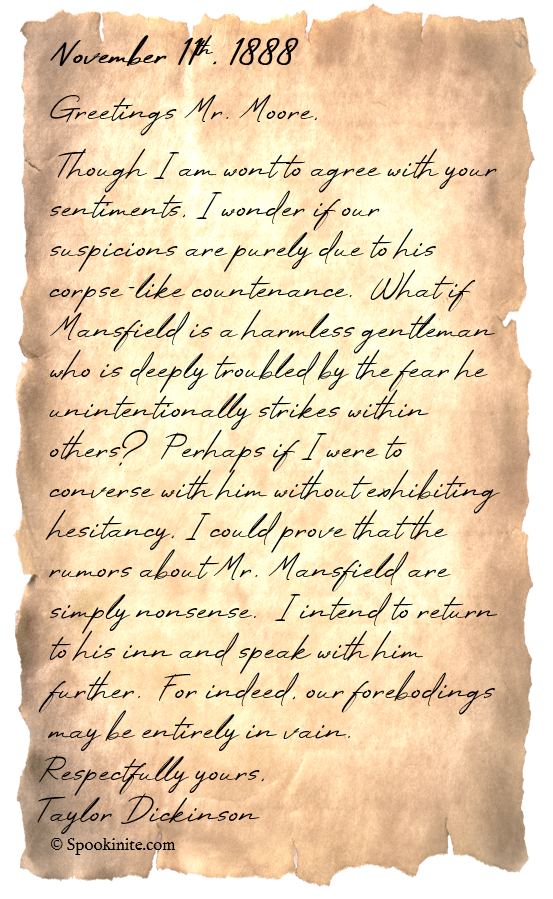 November 11th, 1888
Greetings Mr. Moore,
Though I am wont to agree with your
sentiments, I wonder if our
suspicions are purely due to his
corpse-like countenance. What if
Mansfield is a harmless gentleman
who is deeply troubled by the fear he
unintentionally strikes within
others? Perhaps if I were to
converse with him without exhibiting
hesitancy, I could prove that the
rumors about Mr. Mansfield are
simply nonsense. I intend to return
to his inn and speak with him
further. For indeed, our forebodings
may be entirely in vain.
Respectfully yours,
Taylor Dickinson
© Spookinite.com